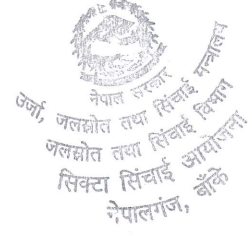 नेपाल सरकार
उर्जा, जलस्रोत तथा सिंचाई मन्त्रालय
जलस्रोत तथा सिंचाई विभाग
सिक्टा सिंचाई आयोजना
नेपालगंज, बाँके